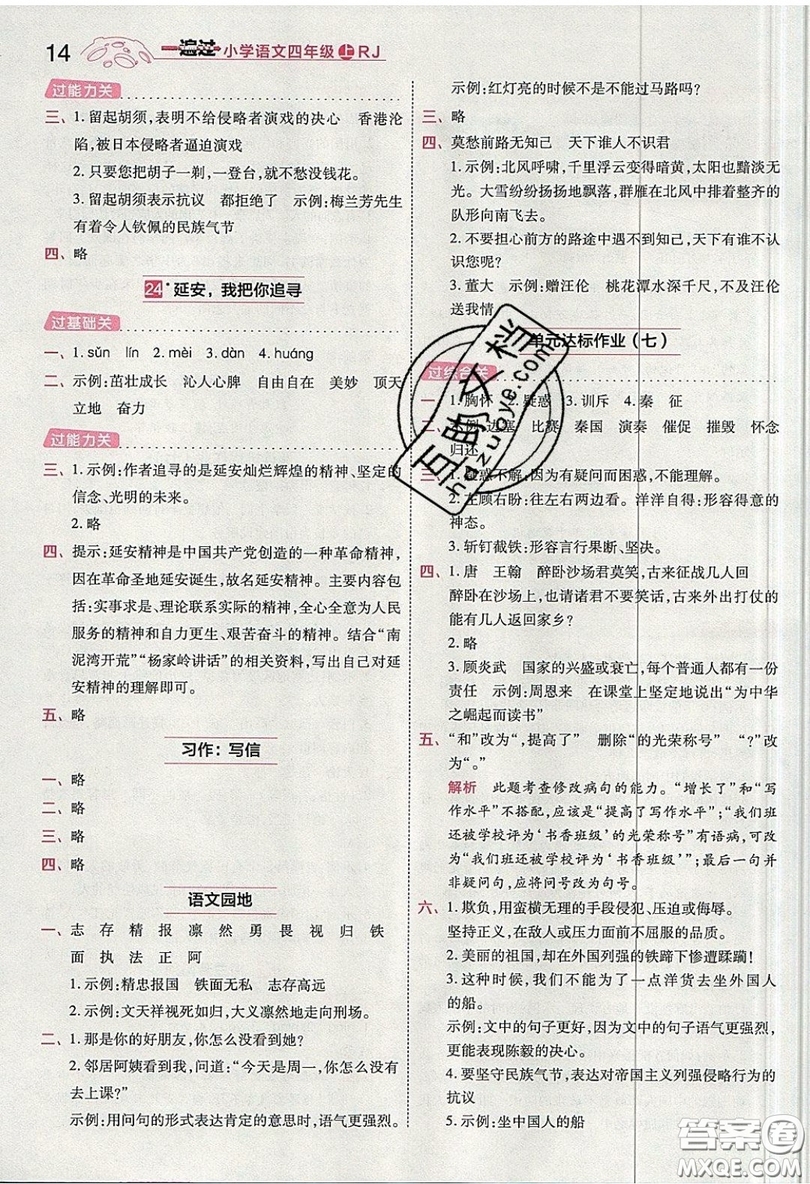 14 一遍过 小学语文四年级 上 RJ
过能力关
三、1. 留起胡须,表明不给侵略者演戏的决心 香港沦
陷,被日本侵略者逼迫演戏
2. 只要您把胡子一剃,一登台,就不愁没钱花。
3. 留起胡须表示抗议 都拒绝了 示例:梅兰芳先生
有着令人钦佩的民族气节
四、略
24* 延安,我把你追寻
过基础关
一、1. sǔn lín 2. mèi 3. dàn 4. huáng
二、示例:茁壮成长 沁人心脾 自由自在 美妙 顶天
立地 奋力
过能力关
三、1. 示例:作者追寻的是延安灿烂辉煌的精神、坚定的
信念、光明的未来。
2. 略
四、提示:延安精神是中国共产党创造的一种革命精神,
因在革命圣地延安诞生,故名延安精神。主要内容
包括:实事求是、理论联系实际的精神,全心全意为人民
服务的精神和自力更生、艰苦奋斗的精神。结合“南
泥湾开荒”“杨家岭讲话”的相关资料,写出自己对延
安精神的理解即可。
五、略
习作:写信
一、略
二、略
三、略
四、略
语文园地
一、志 存 精 报 凛 然 勇 畏 视 归 铁
面 执 法 正 阿
1. 示例:精忠报国 铁面无私 志存高远
2. 示例:文天祥视死如归,大义凛然地走向刑场。
二、1. 那是你的好朋友,你怎么没看到她?
2. 邻居阿姨看到我,问道:“今天是周一,你怎么没有
去上课?”
示例:用问句的形式表达肯定的意思时,语气更强烈。
示例:红灯亮的时候不是不能过马路吗?
三、略
四、莫愁前路无知己 天下谁人不识君
1. 示例:北风呼啸,千里浮云变得暗黄,太阳也黯淡无
光。大雪纷纷扬扬地飘落,群雁在北风中排着整齐的
队形向南飞去。
2. 不要担心前方的路途中遇不到知己,天下有谁不认
识您呢?
3. 董大 示例:赠汪伦 桃花潭水深千尺,不及汪伦
送我情
单元达标作业(七)
过综合关
一、1. 胸怀 2. 疑惑 3. 训斥 4. 秦 征
二、示例:边塞 比赛 秦国 演奏 催促 摧毁 怀念
归还
三、1. 疑惑不解:因为有疑问而困惑,不能理解。
2. 左顾右盼:往左右两边看。洋洋自得:形容得意的
神态。
3. 斩钉截铁:形容言行果断、坚决。
四、1. 唐 王翰 醉卧沙场君莫笑,古来征战几人回
醉卧在沙场上,也请诸君不要笑话,古来出外打仗的
能有几人返回家乡?
2. 略
3. 顾炎武 国家的兴盛或衰亡,每个人都有一份
责任 示例:周恩来 在课堂上坚定地说出“为中华
之崛起而读书”
五、“和”改为“,提高了” 删除“的光荣称号” “?”改
为“。”
解析 此题考查修改病句的能力。“增长了”和“写
作水平”不搭配,应该是“提高了写作水平”;“我们班
还被学校评为‘书香班级’的光荣称号”有语病,可改
为“我们班还被学校评为‘书香班级’”;最后一句并
非疑问句,应将问号改为句号。
六、1. 欺负,用蛮横无理的手段侵犯、压迫或侮辱。
坚持正义,在敌人或压力面前不屈服。
2. 美丽的祖国,却在外国列强的铁蹄下惨遭蹂躏!
3. 这种时候,我们哪能为了一点洋货去坐外国人
的船。
示例:文中的句子更好,因为文中的句子语气更强烈,
更能表现陈毅的决心。
4. 要坚守民族气节,表达对帝国主义列强侵略行为的
抗议
5. 示例:坐中国人的船
百助文档
hdzuoye.com
答案圈
MXQE.COM